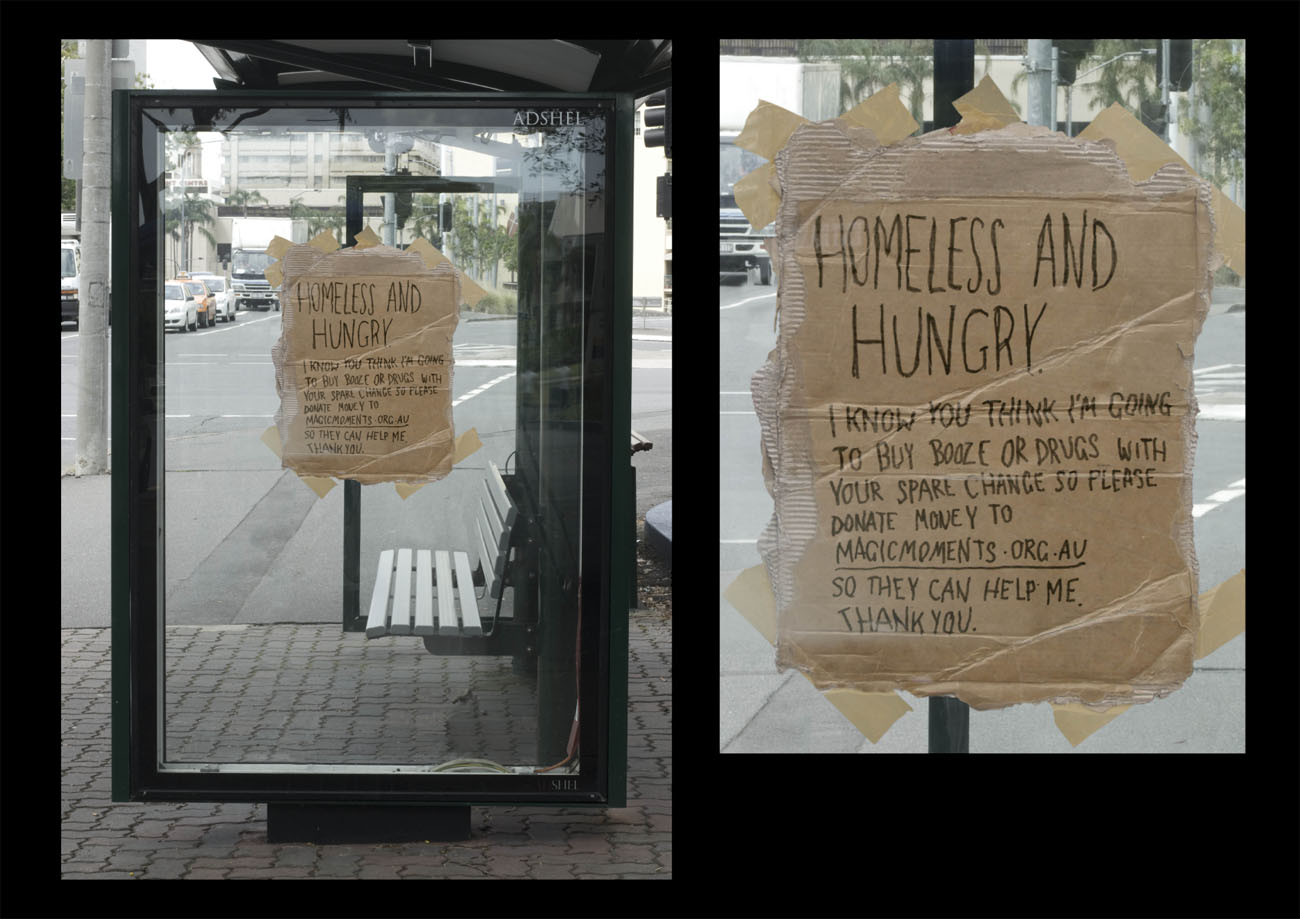 ADSHEL
HOMELESS AND
HUNGRY.
I KNOW YOU THINK I'M GOING
TO BUY BOOZE OR DRUGS WITH
YOUR SPARE CHANGE SO PLEASE
DONATE MONEY TO
MAGICMOMENTS.ORG.AU
SO THEY CAN HELP ME.
THANK YOU.
ADSHEL
HOMELESS AND
HUNGRY.
I KNOW YOU THINK I'M GOING
TO BUY BOOZE OR DRUGS WITH
YOUR SPARE CHANGE SO PLEASE
DONATE MONEY TO
MAGICMOMENTS·ORG·AU
SO THEY CAN HELP ME.
THANK YOU.